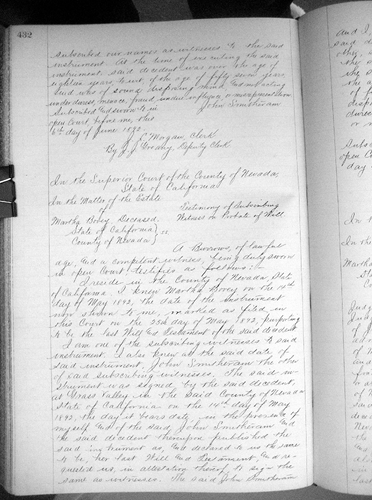 432
subscribed our names as witnesses to the said
instrument. At the time of executing the said
instrument, said decedent was over the age of
eighteen years, to wit of the age of fifty seven years
and was of sound disposing mind and not acting
under duress, menace, fraud, undue influence or misrepresentation
Subscribed and sworn to in John Smitheram
open Court, before me, this
6th day of June 1892.
J. E. Morgan, Clerk
By J. J. Deputy Clerk
In the Superior Court of the County of Nevada,
State of California
In the Matter of the Estate
of Testimony of Subscribing
Martha Deceased. Witness on Probate of Will
State of California } ss.
County of Nevada }
A. Burrows, of lawful
age and a competent witness, being duly sworn
in open Court testifies as follows:
I reside in the County of Nevada, State
of California. I knew Martha on the 14th
day of May 1892, the date of the instrument
now shown to me, marked as filed in
this Court on the 25th day of May 1892, purporting
to be the last Will and Testament of the said decedent
I am one of the subscribing witnesses to said
instrument. I also knew at the said date of
said instrument, John Smitheram the other
of said subscribing witnesses. The said in-
strument was signed by the said decedent,
at Grass Valley in the said County of Nevada
State of California on the 14th day of May
1892, the day it bears date, in the presence of
myself and of the said John Smitheram and
the said decedent thereupon published the
said instrument as, and declared to us the same
to be, her last Will and Testament and re-
quested us, in attestation thereof, to sign the
same as witnesses. The said John Smitheram